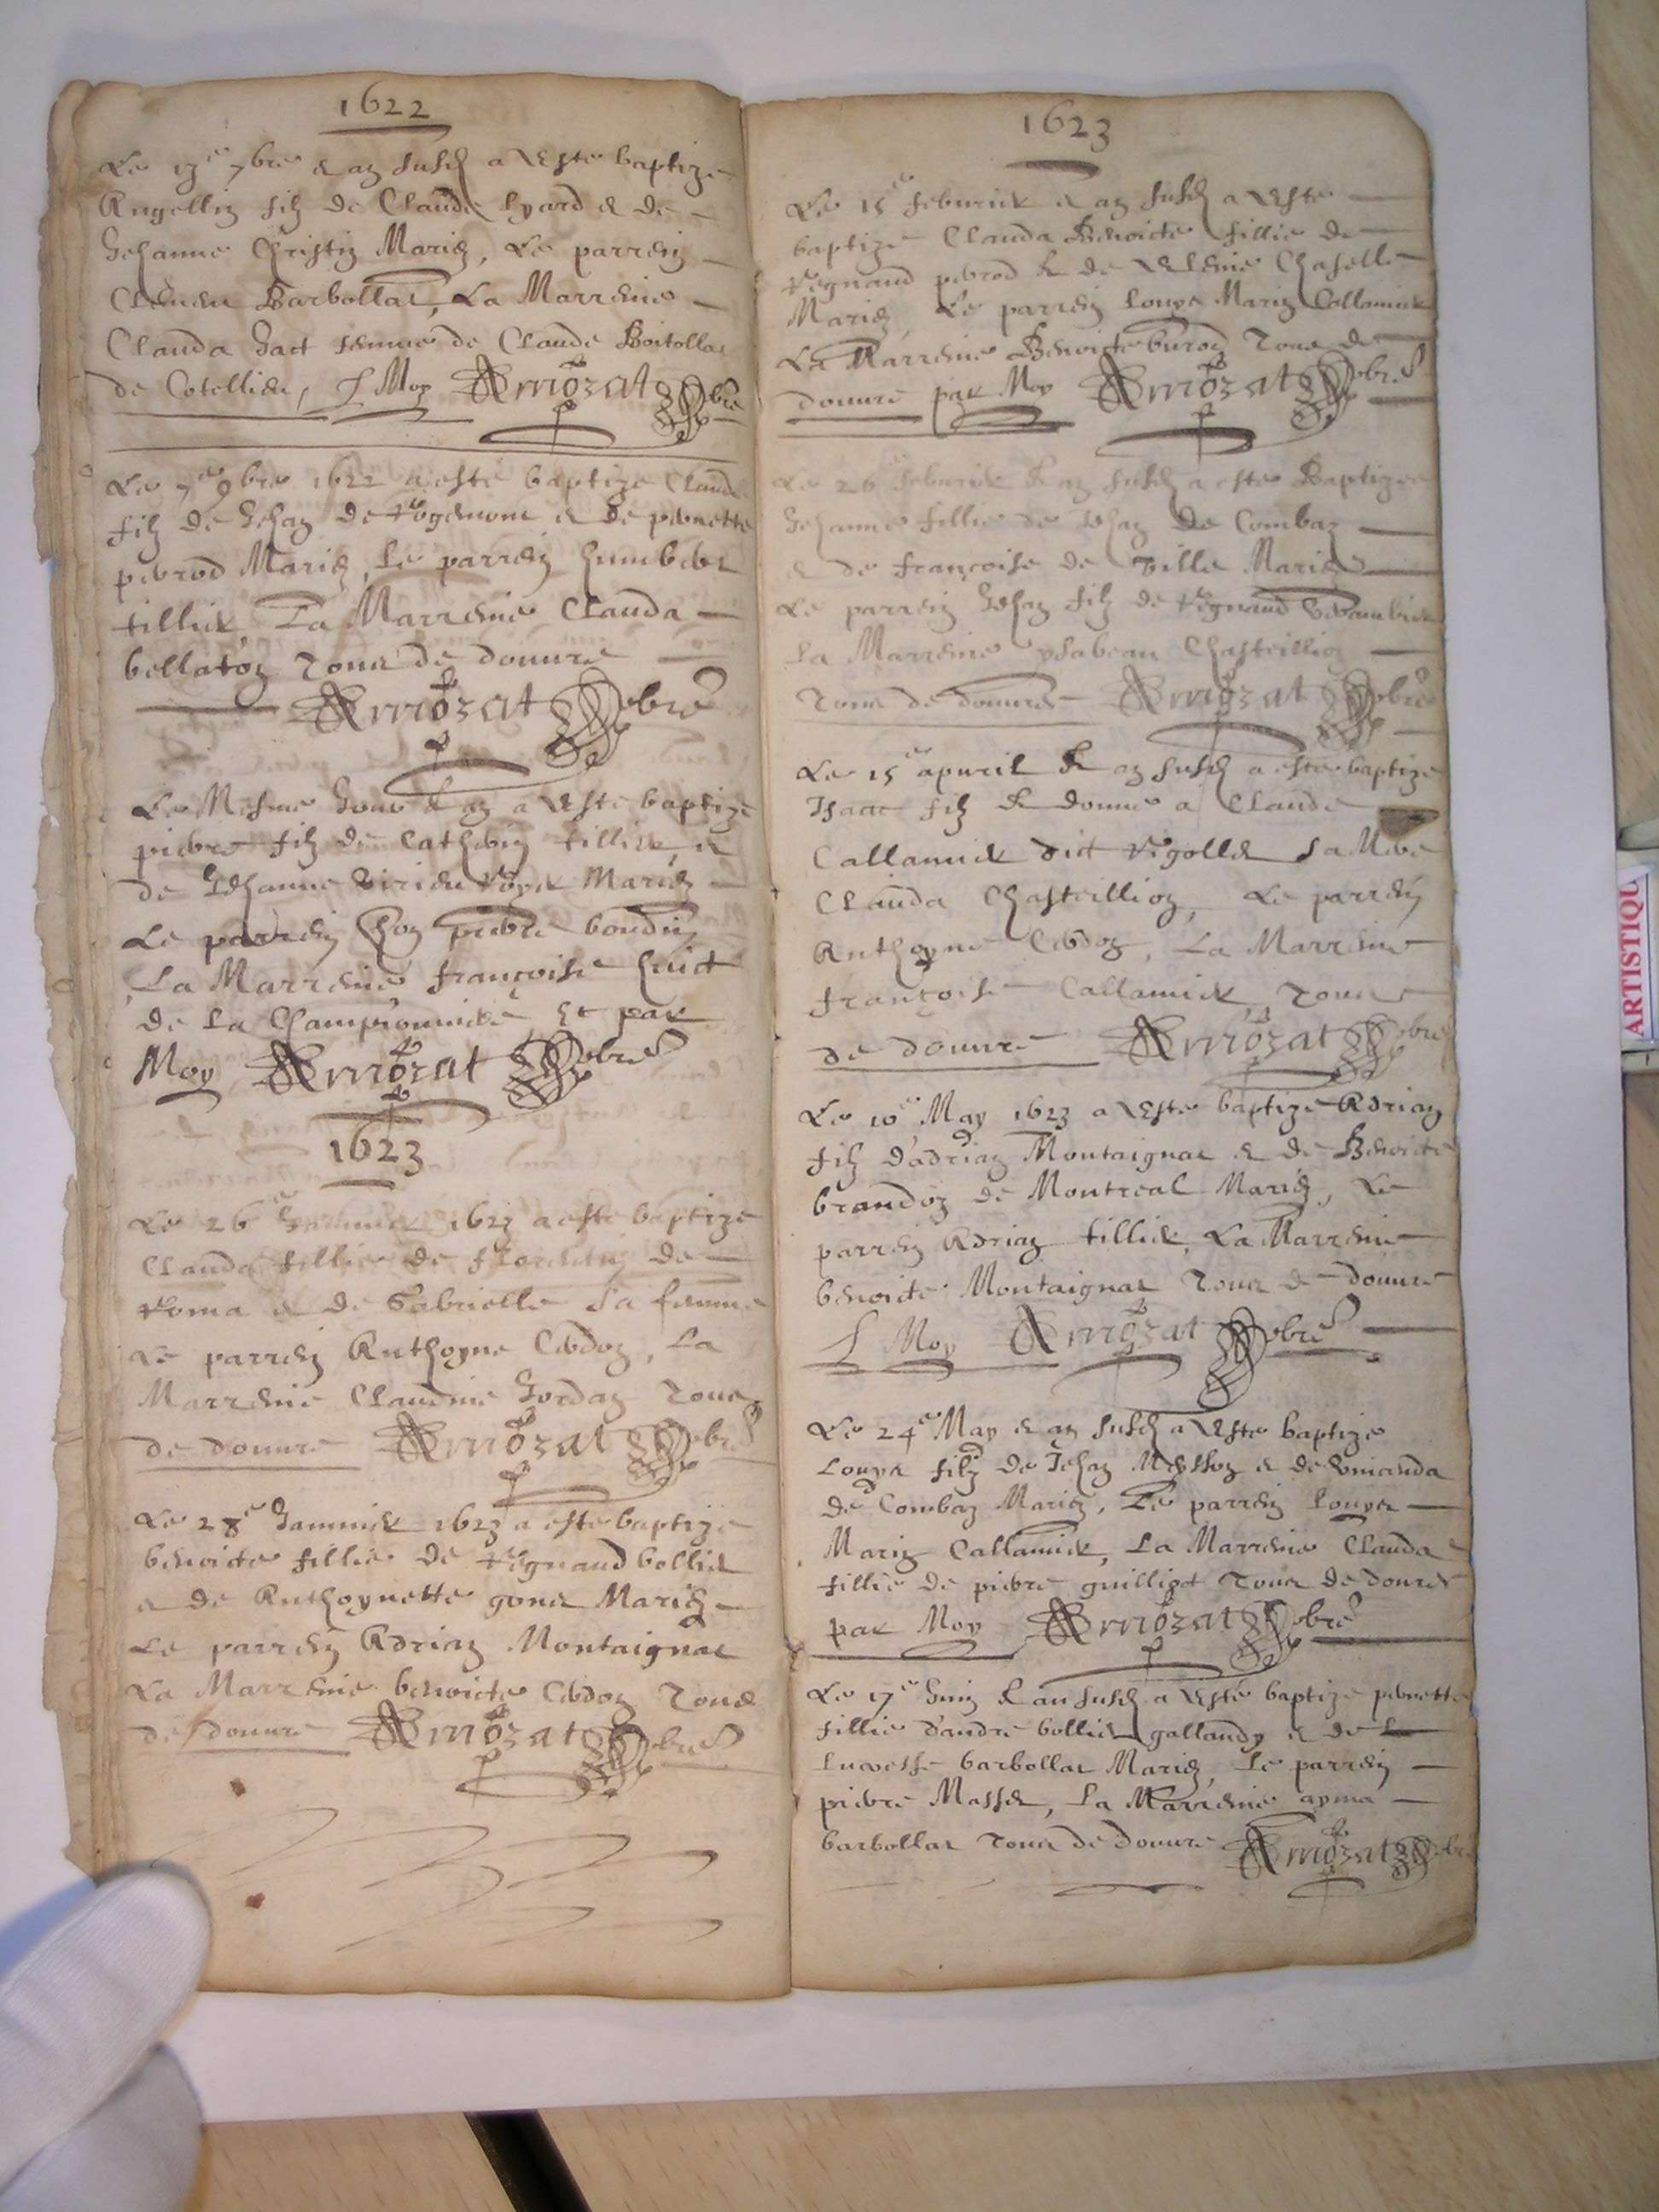 1622
Le 13e 7bre & an susd a esté baptizé
Angellin filz de Claude Lyard & de
Jehanne Christin Mariez, Le parrein
Barbollat, La Marreine
Clauda Jact femme de Claude Boitollat
de Cotellieu, P Moy Armozat pbre
Le 7e 9bre 1622 a esté baptizé Claude
filz de Jehan de Rogemont & de pernette
perrod Mariez, Le parrein humbert
tillier, La Marreine Clauda
bellaton Tous de douvre
Armozat pbre
Le Mesme Jour & an a esté baptizé
pierre filz de Catherin tillier &
de Jehanne Mariez
Le parrein hon pierre bondin
La Marreine françoise huict
de La Championniere, Et par
Moy Armozat pbre
1623
Le 26e 1623 a esté baptizé
Clauda fillie de de
Roma & de Gabrielle sa femme
Le parrein Anthoyne Cerdon, La
Marreine Claudine Jordan Tous
de douvre Armozat pbre
Le 28e Jannvier 1623 a esté baptizé
benoicte fillie de Regnaud bollier
& de Anthoynette gonet Mariez
Le parrein Adrian Montaignat
La Marreine benoicte Cerdon Tous
de douvre Armozat pbre
1623
Le 15e febvrier & an susd a esté
baptizé Clauda Benoicte fillie de
Regnaud perrod & de Chaselle
Mariez, Le parrein Louys Marin Callamier
La Marreine Benoicte burod Tous de
douvre par Moy Armozat pbre
Le 26e febvrier & an susd a esté Baptizee
Jehanne fillie de Jehan De Comban
& de françoise de Ville Mariez
Le parrein Jehan filz de Regnaud
La Marreine ysabeau Chasteillion
Tous de douvre Armozat pbre
Le 15e apvril & an susd a esté baptizé
Isaac filz & donné a Claude
Callamier dict Rigollet sa Mere
Clauda Chasteillion, Le parrein
Anthoyne Cerdon, La Marreine
françoise Callamier, Tous
de douvre Armozat pbre
Le 10e May 1623 a esté baptizé Adrian
filz d'adrian Montaignat & de Benoicte
brandon de Montreal Mariez, Le
parrein Adrian tillier, La Marreine
benoicte Montaignat Tous de douvre
P Moy Armozat pbre
Le 24e May & an susd a esté baptizé
Louys filz de Jehan Messon & de
de Comban Mariez, Le parrein Louys
Marin Callamier, La Marreine Clauda
fillie de pierre guilliot Tous de douvre
par Moy Armozat pbre
Le 17e Juin & an susd a esté baptizé pernette
fillie d'andre bollier gallandy & de
Lucresse barbollat Mariez, Le parrein
pierre Masset, La Marreine ayma
barbollat Tous de douvre Armozat pbre
ARTISTIQU